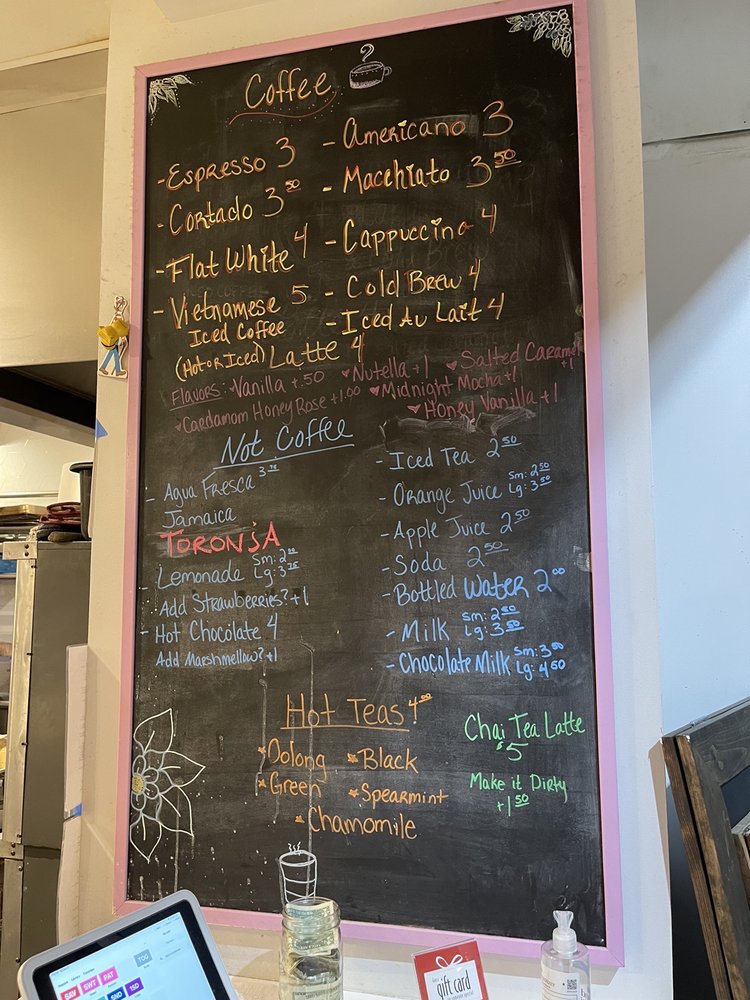 Coffee
- Espresso 3
- Americano 3
- Cortado 3 50
- Macchiato 3 50
- Flat White 4
- Cappuccino 4
- Vietnamese 5
Iced Coffee
- Cold Brew 4
- Iced Au Lait 4
(Hot or Iced) Latte 4
Flavors: Vanilla +.50 Nutella +1 Salted Caramel +1
Cardamom Honey Rose +1.00 Midnight Mocha +1
Honey Vanilla +1
Not Coffee
- Agua Fresca 3
Jamaica
TORONJA
- Lemonade Sm: 2 Lg: 3
Add Strawberries? +1
- Hot Chocolate 4
Add Marshmellow? +1
- Iced Tea 2 50
- Orange Juice Sm: 2 50
Lg: 3 50
- Apple Juice 2 50
- Soda 2 50
- Bottled Water 2 00
- Milk Sm: 2 50
Lg: 3 50
- Chocolate Milk Sm: 3 50
Lg: 4 50
Hot Teas! 4 00
Oolong
Black
Green
Spearmint
Chamomile
Chai Tea Latte
$5
Make it Dirty
+1 50
TOG
SAV SWT PAT
SND 1SD
gift card